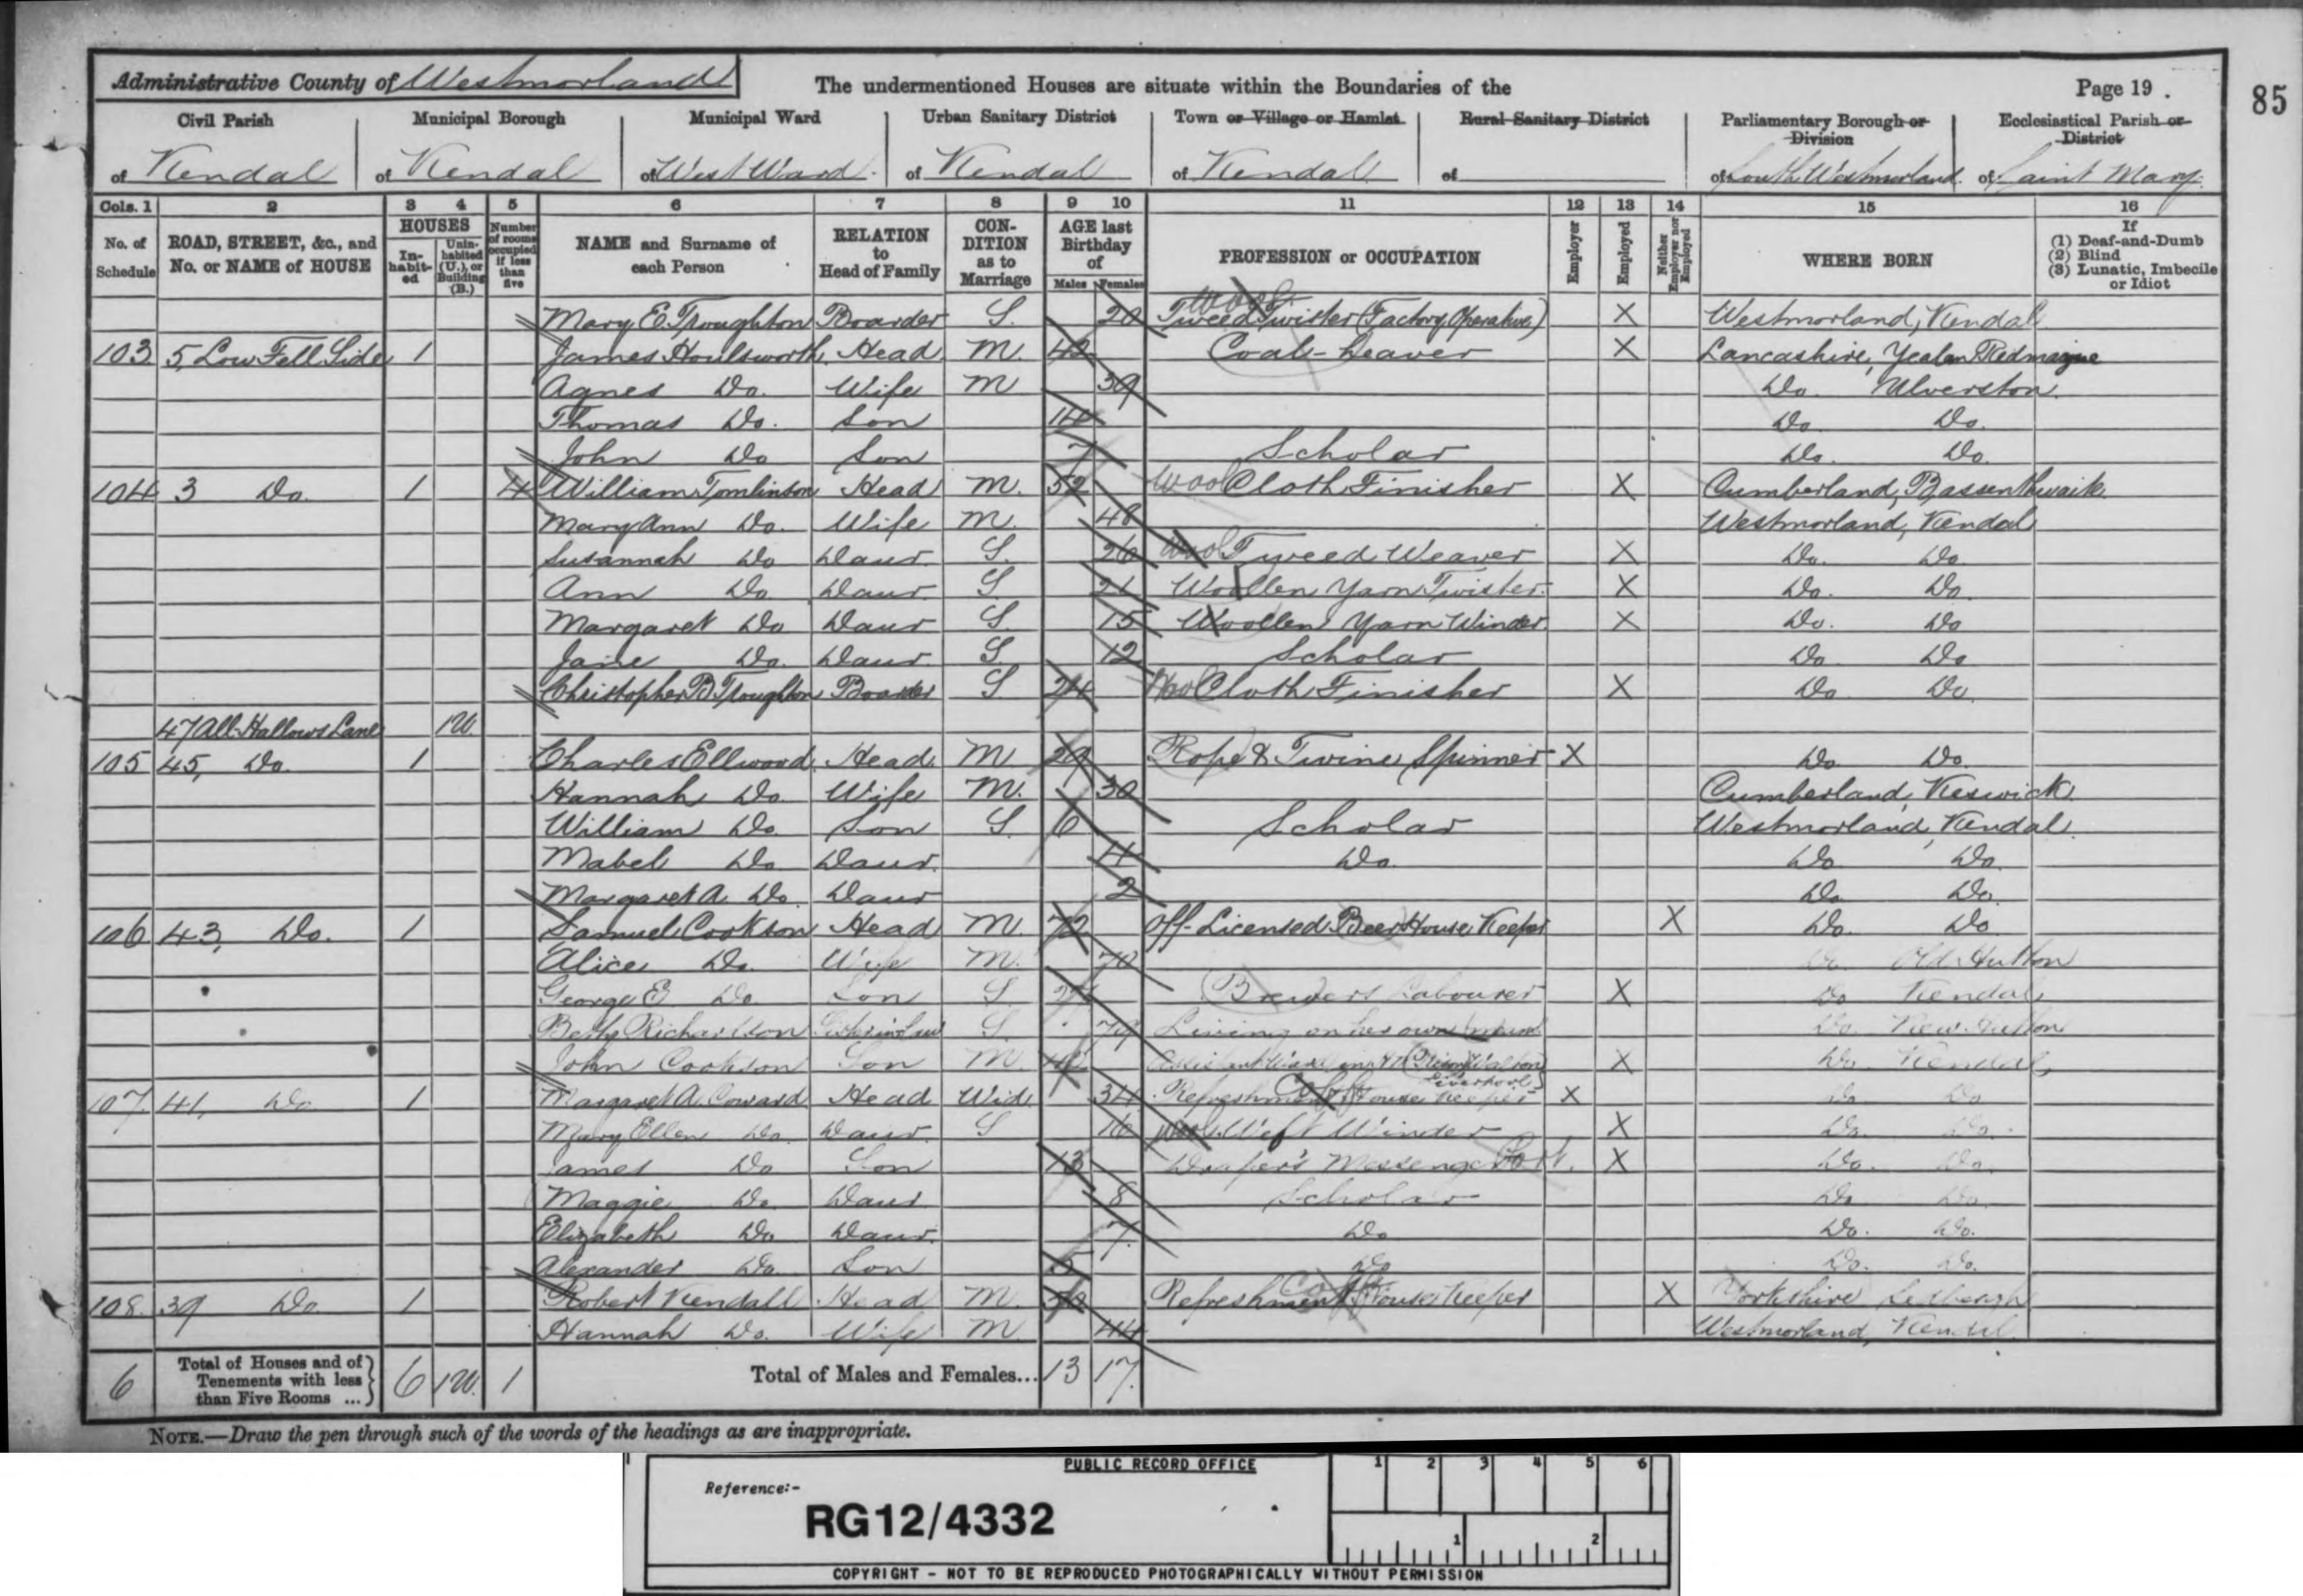 Administrative County of Westmorland The undermentioned Houses are situate within the Boundaries of the Page 19 85
Civil Parish Municipal Borough Municipal Ward Urban Sanitary District Town or Village or Hamlet Rural Sanitary District Parliamentary Borough or Division Ecclesiastical Parish or District
of Kendal of Kendal of West Ward of Kendal of Kendal of of South Westmorland of Saint Mary
Cols. 1 2 3 4 5 6 7 8 9 10 11 12 13 14 15 16
No. of Schedule ROAD, STREET, &c., and No. or NAME of HOUSE HOUSES In-habit-ed Unin-habited (U.), or Building (B.) Number of rooms occupied if less than five NAME and Surname of each Person RELATION to Head of Family CON-DITION as to Marriage AGE last Birthday of Males Females PROFESSION or OCCUPATION Employer Employed Neither Employer nor Employed WHERE BORN If (1) Deaf-and-Dumb (2) Blind (3) Lunatic, Imbecile or Idiot
Mary E. Troughton Boarder S. 20 Wool Tweed Twister (Factory Operative) X Westmorland, Kendal
103 5, Low Fell Side 1 James Houlsworth Head M. 42 Coal-heaver X Lancashire, Yealan Redmayne
Agnes Do. Wife M 39 Do. Ulverston
Thomas Do. Son 14 Do. Do.
John Do Son 7 Scholar Do. Do.
104 3 Do. 1 4 William Tomlinson Head M. 52 Wool Cloth Finisher X Cumberland, Bassenthwaite
Mary Ann Do. Wife M. 48 Westmorland, Kendal
Susannah Do Daur. S. 26 Wool Tweed Weaver X Do. Do
Ann Do. Daur. S 21 Woollen Yarn Twister X Do. Do
Margaret Do Daur S 15 Woollen Yarn Winder X Do. Do
Jane Do. Daur. S. 12 Scholar Do Do
Christopher B Troughton Boarder S 24 Woo Cloth Finisher X Do Do
47 All-Hallows Lane 1U.
105 45, Do. 1 Charles Ellwood Head M 29 Rope & Twine Spinner X Do Do.
Hannah Do. Wife M. 30 Cumberland, Keswick
William Do Son S. 6 Scholar Westmorland, Kendal
Mabel Do. Daur. 4 Do. Do Do
Margaret A. Do. Daur 2 Do Do.
106 43, Do. 1 Samuel Cookson Head M. 72 Off-Licensed Beer House Keeper X Do. Do
Alice Do. Wife M. 70 Do Old Hutton
George E Do. Son S. Brewers Labourer X Do Kendal
Betsy Richardson Sister in law S 79 Living on her own means Do. New Hutton
John Cookson Son M. X Do. Kendal
Liverpool)
107 41, Do 1 Margaret A. Coward Head Wid. 34 Refreshment House Keeper X Do Do
Mary Ellen Do. Daur. S 16 Wool Weft Winder X Do. Do.
James Do Son 13 Draper's Messenger Port. X Do. Do.
Maggie Do. Daur 8 Scholar Do Do
Elizabeth Do Daur. 7 Do Do. Do.
Alexander Do. Son 5 Do Do. Do.
108. 39 Do 1 Robert Kendall Head M. Refreshment House Keeper X Yorkshire Sedbergh
Hannah Do. Wife M 44 Westmorland, Kendal
6 Total of Houses and of Tenements with less than Five Rooms ... 6 1U. 1 Total of Males and Females... 13 17
NOTE.—Draw the pen through such of the words of the headings as are inappropriate.
PUBLIC RECORD OFFICE 1 2 3 4 5 6
Reference:-
RG12/4332
1 2
COPYRIGHT - NOT TO BE REPRODUCED PHOTOGRAPHICALLY WITHOUT PERMISSION